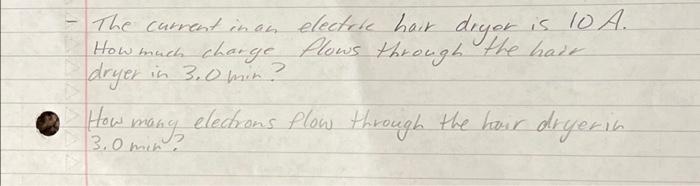 - The current in an electric hair dryer is 10 A.
How much charge flows through the hair
dryer in 3.0 min?
How many electrons flow through the hair dryer in
3.0 min?